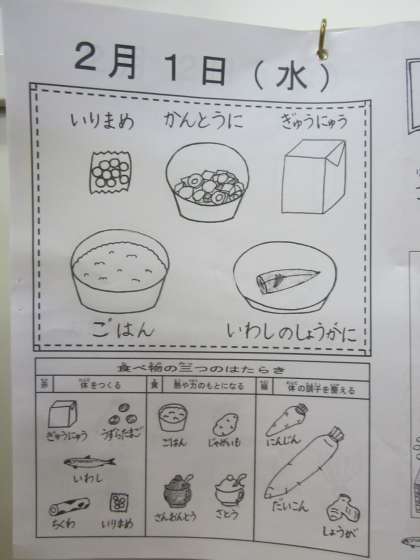 2月1日(水)
いりまめ かんとうに ぎゅうにゅう
ごはん いわしのしょうがに
食べ物の三つのはたらき
赤 体をつくる 黄 熱や力のもとになる 緑 体の調子を整える
ぎゅうにゅう うずらたまご ごはん じゃがいも にんじん
いわし
ちくわ いりまめ さんおんとう さとう だいこん しょうが